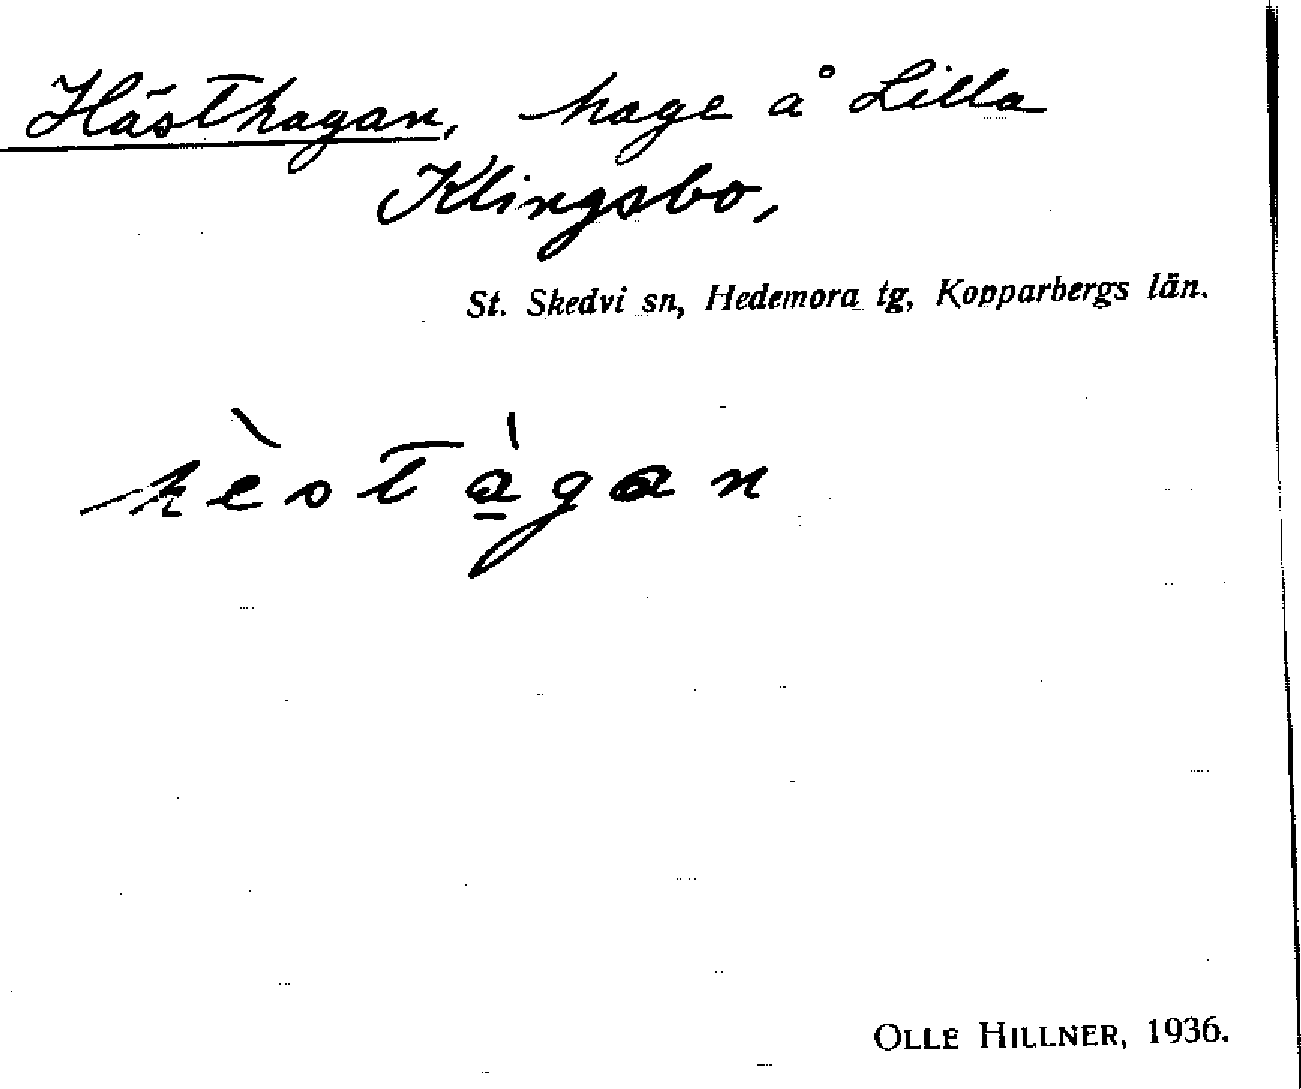 Hästhagan, hage å Lilla
Klingsbo,
St. Skedvi sn, Hedemora tg, Kopparbergs län.
hèstàgan
OLLE HILLNER, 1936.